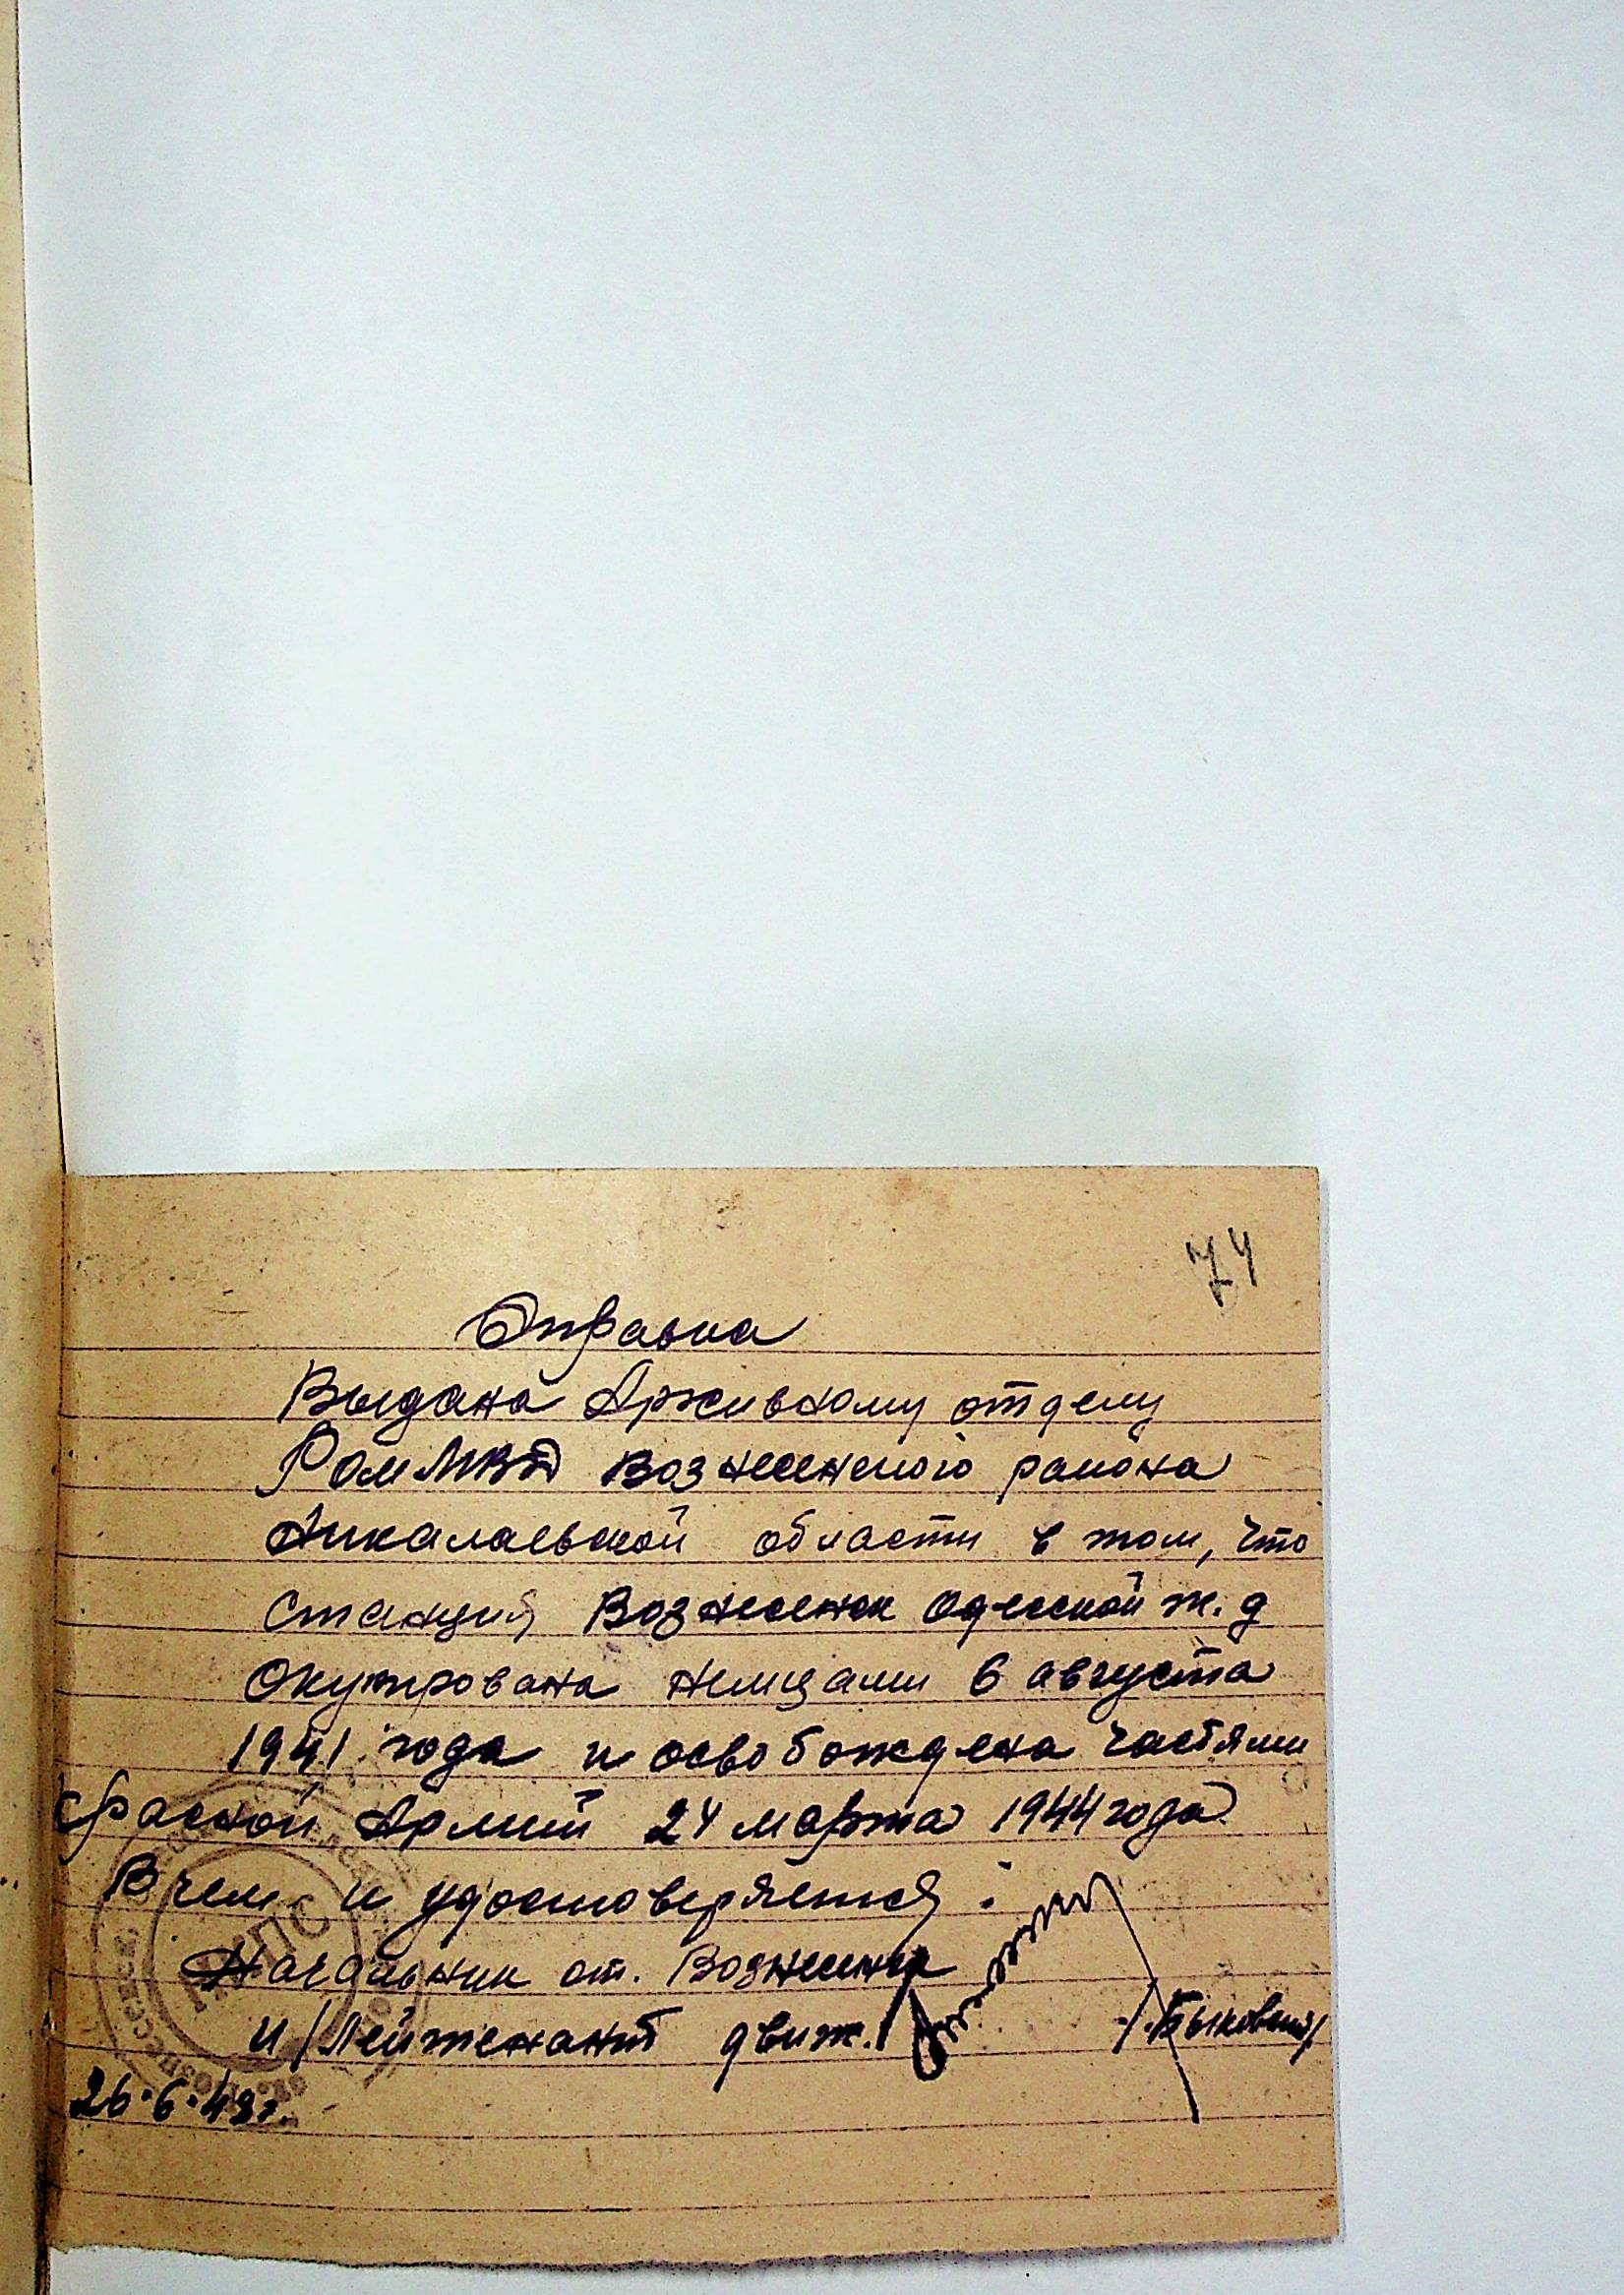 74
Справка
Выдана Архивному отделу
РОМ МВД Вознесенского района
Николаевской области в том, что
Станция Вознесенск Одесской ж. д
Окупирована немцами 6 августа
1941 года и освобождена частями
Красной Армий 24 марта 1944 года
В чем и удостоверяется.
Начальник ст. Вознесенск
и/Лейтенант движ./ /Быковский/
26.6.48г.
МПС